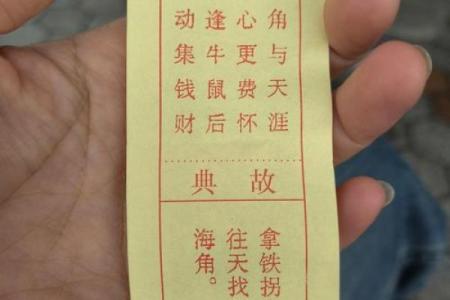 角与天涯
心更费怀
逢牛鼠后
动集钱财
典故
拿铁拐
往天找
海角。